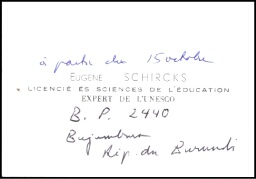 à partir du 15 octobre
EUGÈNE SCHIRCKS
LICENCIÉ ÈS SCIENCES DE L'ÉDUCATION
EXPERT DE L'UNESCO
B. P. 2440
Bujumbura
Rép. du Burundi